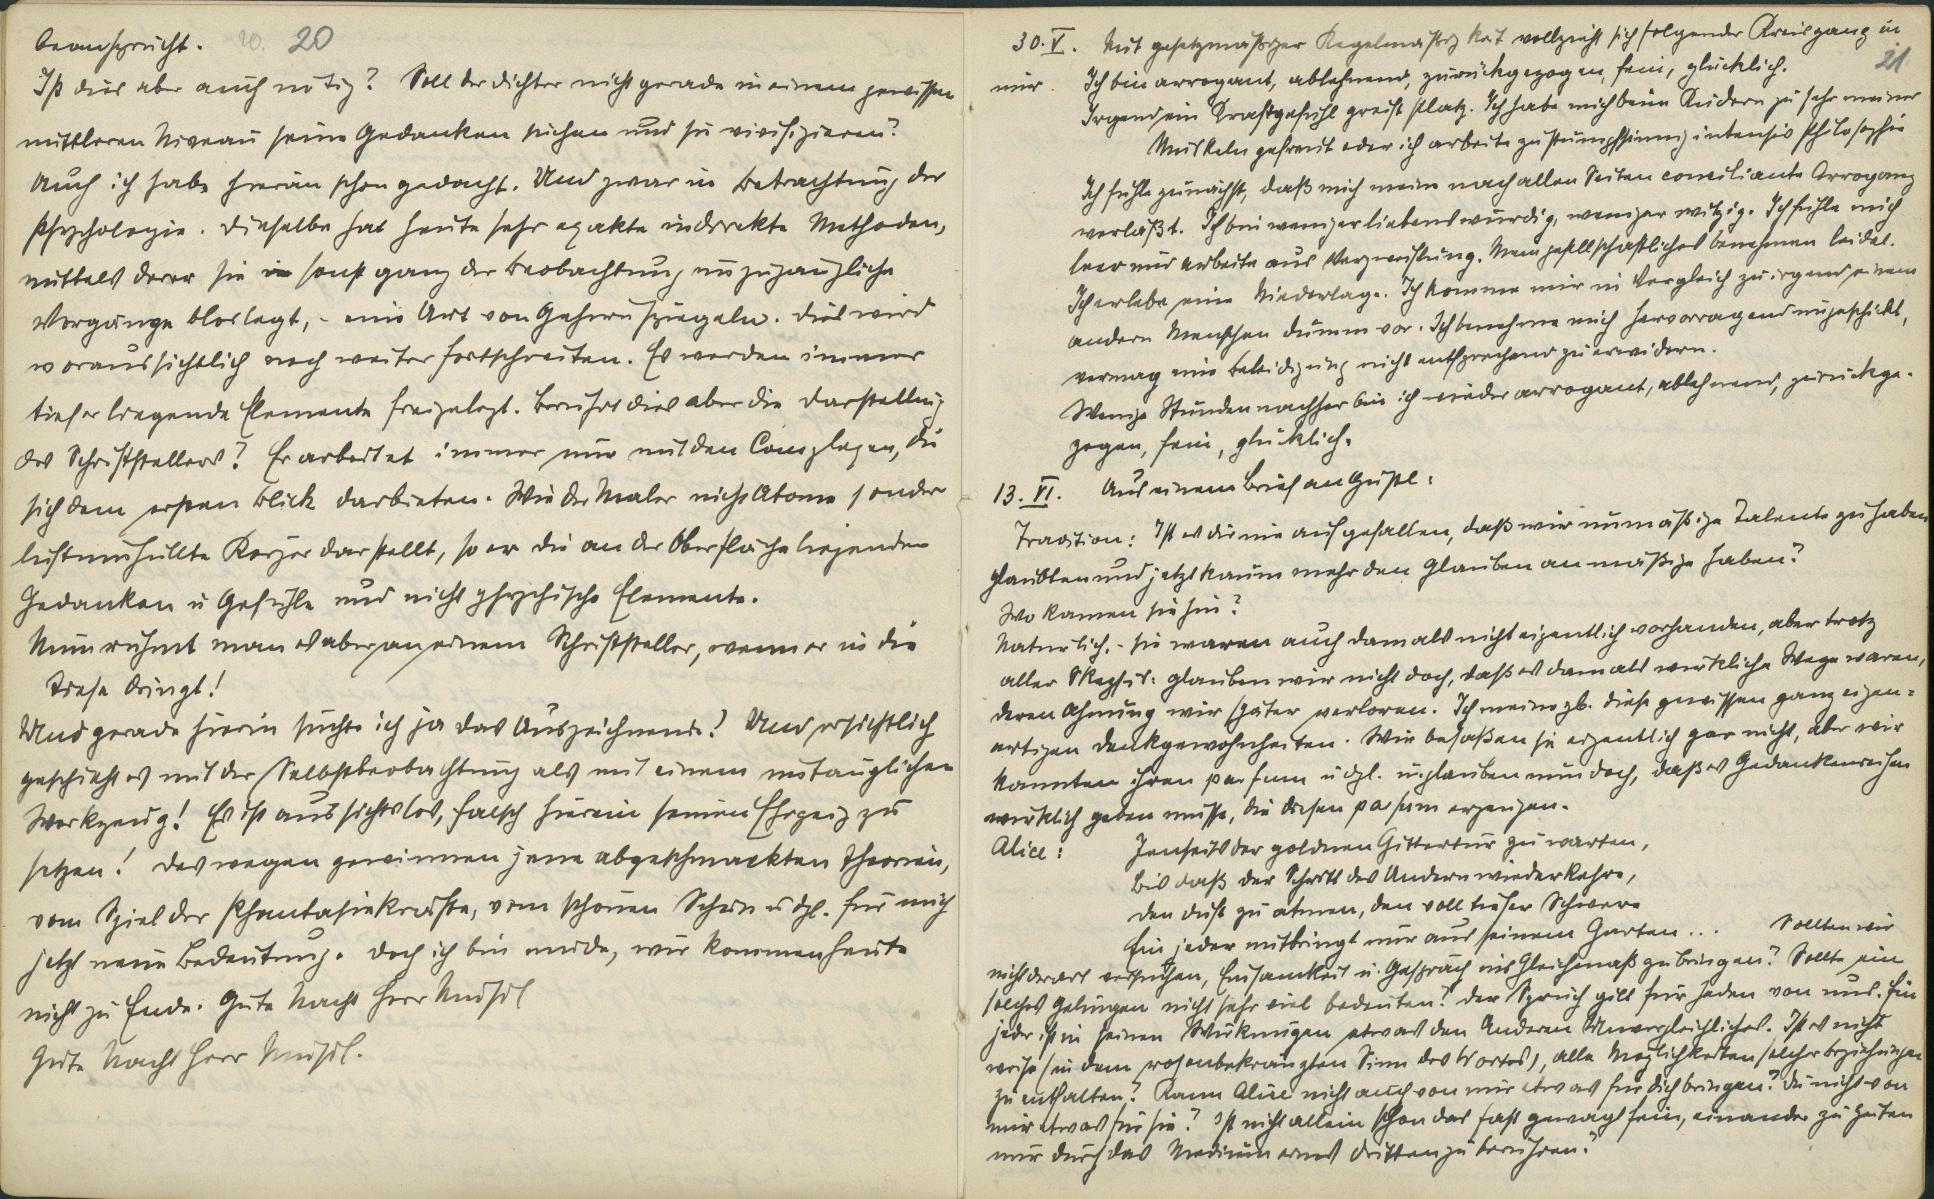 beansprucht. 20. 20
Ist dies aber auch nötig? Soll der dichter nicht gerade in einem gewissen
mittleren Niveau seine Gedanken suchen und sie vivifizieren?
Auch ich habe hieran schon gedacht. Und zwar in Betrachtung der
Psychologie. Dieselbe hat heute sehr exakte indirekte Methoden,
mittels derer sie sonst ganz der Beobachtung unzugängliche
Vorgänge bloslegt, - eine Art von Gehirnspiegeln. Dies wird
voraussichtlich noch weiter fortschreiten. Es werden immer
tiefer liegende Elemente freigelegt. Berührt dies aber die Darstellung
des Schriftstellers? Er arbeitet immer nur mit den Complexen, die
sich dem ersten Blick darbieten. Wie der Maler nicht Atome sondern
luftumhüllte Körper darstellt, so er die an der Oberfläche liegenden
Gedanken u Gefühle und nicht psychische Elemente.
Nun rühmt man es aber an einem Schriftsteller, wenn er in die
Tiefe dringt!
Und gerade hierin suchte ich ja das Auszeichnende? Und ersichtlich
geschieht es mit der Selbstbeobachtung als mit einem untauglichen
Werkzeug! Es ist aussichtslos, falsch hierein seinen Ehrgeiz zu
setzen! Deswegen gewinnen jene abgeschmackten Theorien,
vom Spiel der Phantasiekräfte, vom schönen Schein u dgl. für mich
jetzt neue Bedeutung. Doch ich bin müde, wir kommen heute
nicht zu Ende. Gute Nacht Herr Musil
Gute Nacht Herr Musil.
21
30. V. Mit gesetzmäßiger Regelmäßigkeit vollzieht sich folgender Kreisgang in
mir. Ich bin arrogant, ablehnend, zurückgezogen, fein, glücklich.
Irgend ein Kraftgefühl greift Platz. Ich habe mich beim Rudern zu sehr meiner
Muskeln gefreut oder ich arbeite zu stumpfsinnig intensiv Philosophie
Ich fühle zunächst, daß mich meine nach allen Seiten conciliante Arroganz
verläßt. Ich bin weniger liebenswürdig, weniger witzig. Ich fühle mich
leer und arbeite aus Verzweiflung. Mein gesellschaftliches Benehmen leidet.
Ich erlebe eine Niederlage. Ich komme mir im Vergleich zu irgend einem
andern Menschen dumm vor. Ich benehme mich hervorragend ungeschickt,
vermag eine Beleidigung nicht entsprechend zu erwidern.
Wenige Stunden nachher bin ich wieder arrogant, ablehnend, zurückge-
zogen, fein, glücklich.
13. VI. Aus einem Brief an Gustl:
Tradition: Ist es dir nie aufgefallen, daß wir unmäßige Talente zu haben
glaubten und jetzt kaum mehr den Glauben an mäßige haben?
Wo kamen sie hin?
Natürlich, - sie waren auch damals nicht eigentlich vorhanden, aber trotz
aller Skepsis: glauben wir nicht doch, daß es damals wirkliche Wege waren,
deren Ahnung wir später verloren. Ich meine zb. diese gewissen ganz eigen=
artigen Denkgewohnheiten. Wir besaßen sie eigentlich gar nicht, aber wir
kannten ihren parfum u dgl. u. glauben nun doch, daß es Gedankenreihen
wirklich geben müsse, die diesen parfum erzeugen.
Alice: Jenseits der goldnen Gittertür zu warten,
Bis daß der Schritt des Andern wiederkehre,
Den Duft zu atmen, den voll tiefer Schwere
Ein jeder mitbringt nur aus seinem Garten... Sollten wir
nicht derart versuchen, Einsamkeit u. Gespräch ins Gleichmaß zu bringen? Sollte ein
solches Gelingen nicht sehr viel bedeuten? Der Spruch gilt für jeden von uns. Ein
jeder ist in seinen Wirkungen etwas den Anderen Unvergleichliches. Ist es nicht
weise (in dem rosenbekränzten Sinn des Wortes), alle Möglichkeiten solcher Beziehungen
zu enthalten? Kann Alice nicht auch von mir etwas für dich bringen? Du nicht von
mir etwas für sie? Ist nicht allein schon das fast gewagt fein, einander zu Zeiten
nur durch das Medium eines Dritten zu berühren?